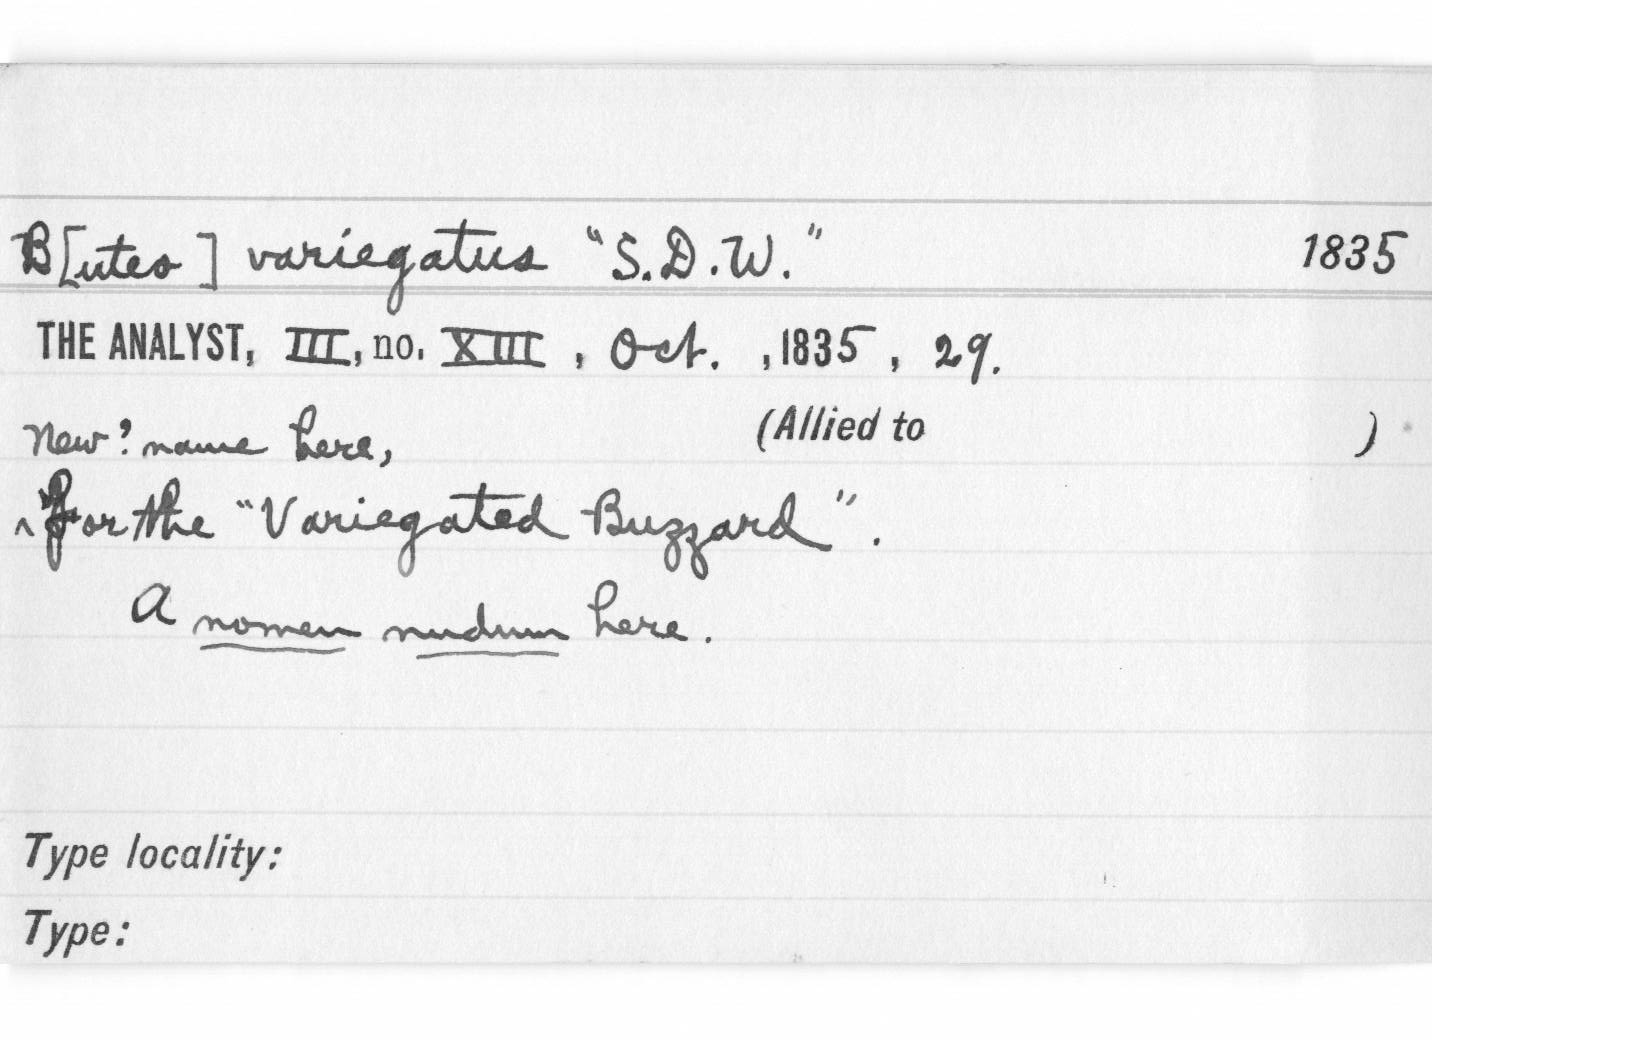 B[uteo] variegatus "S.D.W." 1835
THE ANALYST, III, no. XIII, Oct., 1835, 29.
New? name here, (Allied to )
^ for the "Variegated Buzzard".
A nomen nudum here.
Type locality:
Type: